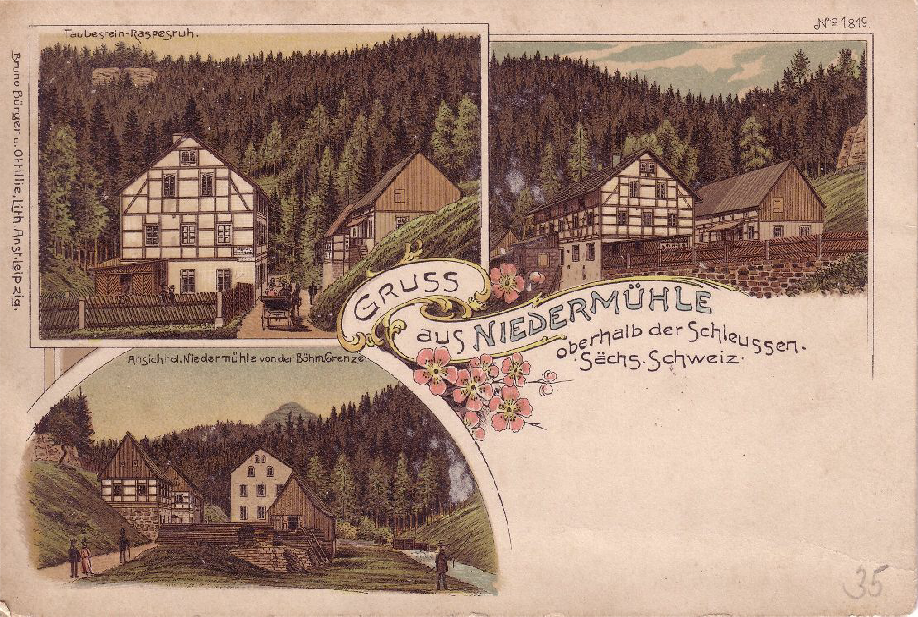 Taubestein-Raspesruh.
No 1819.
Bruno Bürger u. Ottillie, Lith. Anst. Leipzig.
GRUSS
aus NIEDERMÜHLE
oberhalb der Schleussen.
Sächs. Schweiz.
Ansicht d. Niedermühle von der Böhm. Grenze.
35